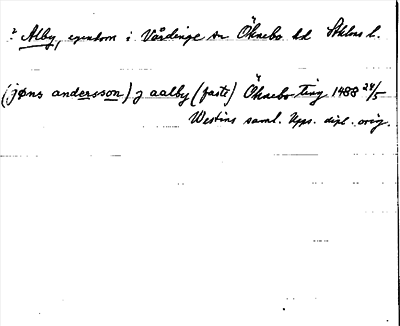 ? Alby, egendom i Vårdinge sn Öknebo hd Sthlms l.
(jøns andersson) j aalby (faste) Öknebo ting 1488 24/5
Westins saml. Upps. dipl. orig.